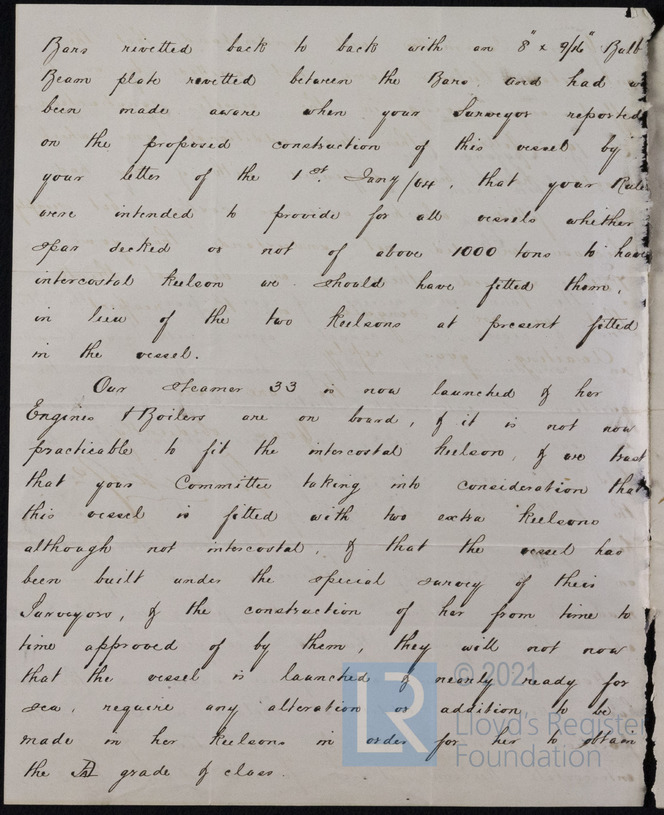 Bars rivetted back to back with an 8" x 9/16" Bulb
Beam plate rivetted between the Bars and had we
been made aware when your Surveyor reported
on the proposed construction of this vessel by
your letter of the 1st Jany /64, that your Rule
were intended to provide for all vessels whether
spar decked or not of above 1000 tons to have
intercostal keelson we should have fitted them,
in lieu of the two Keelsons at present fitted
in the vessel.
Our steamer 33 is now launched & her
Engines & Boilers are on board, & it is not now
practicable to fit the intercostal keelson, & we trust
that your Committee taking into consideration that
this vessel is fitted with two extra Keelsons
although not intercostal, & that the vessel has
been built under the special survey of their
Surveyors, & the construction of her from time to
time approved of by them, they will not now
that the vessel is launched & nearly ready for
sea, require any alteration or addition to be
made in her Keelsons in order for her to obtain
the grade of class.
LR
© 2021
Lloyd's Register
Foundation